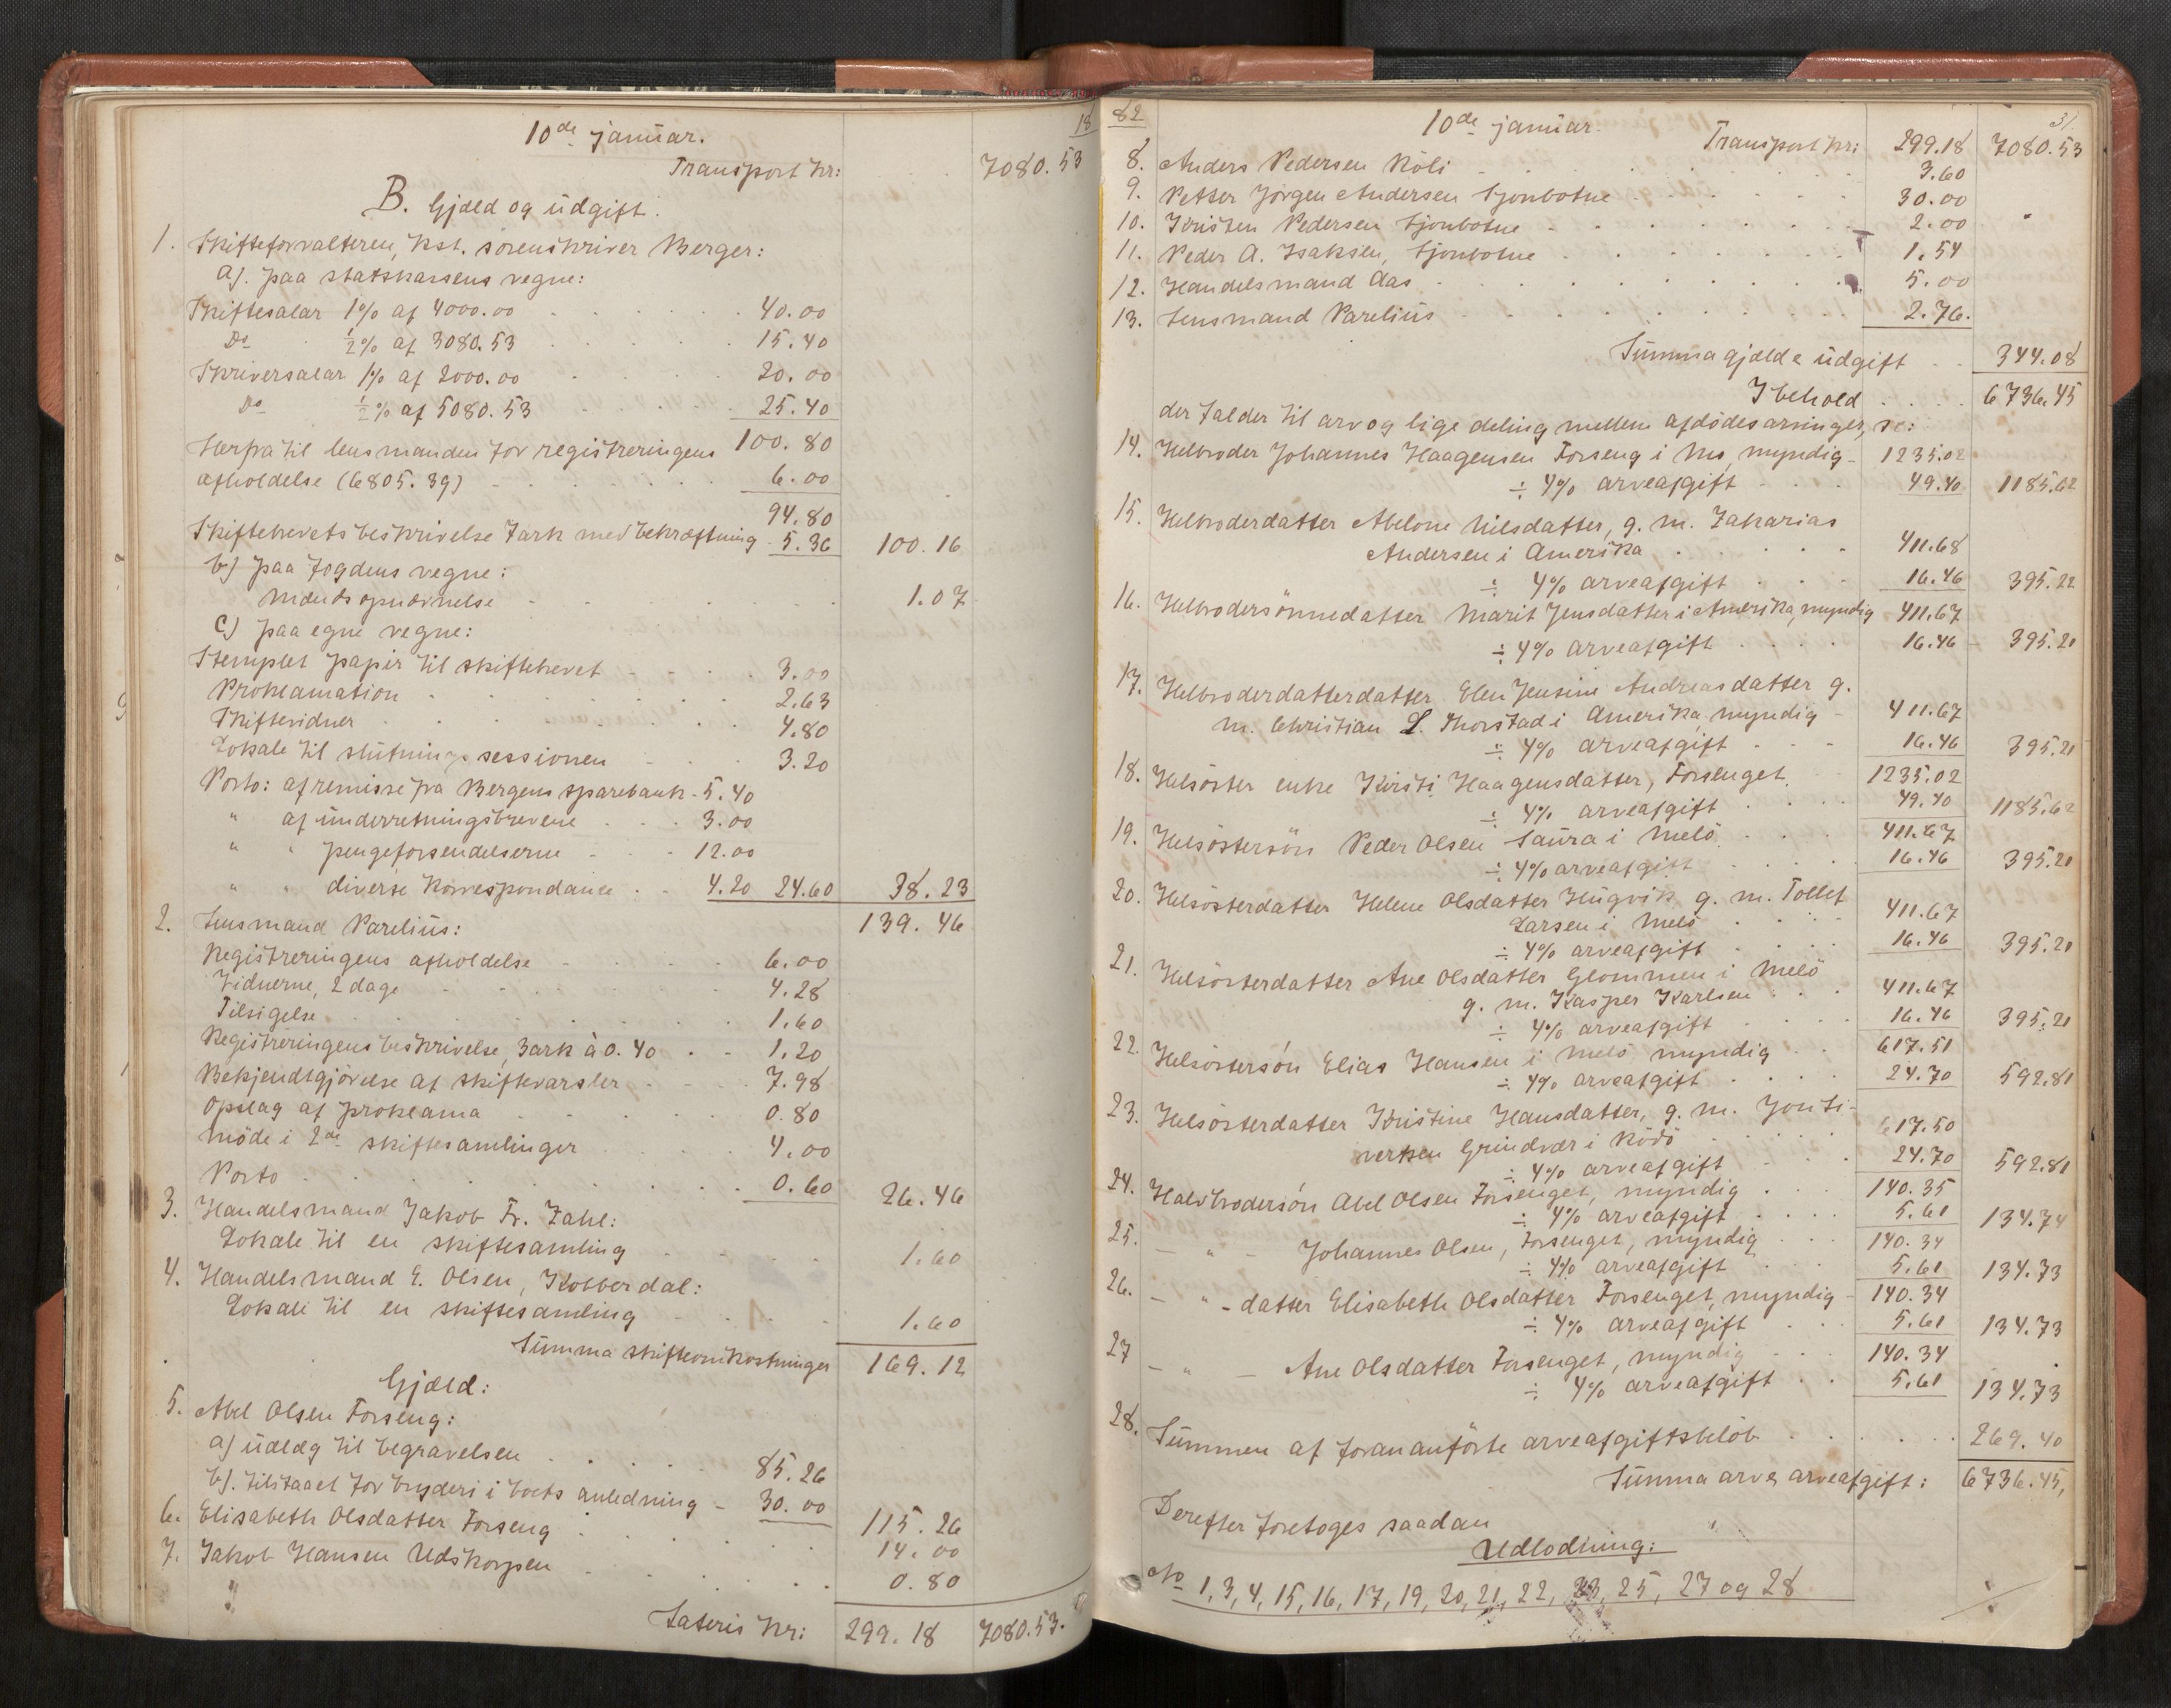 18
10de januar.
Transport kr: 7080.53
B. Gjæld og udgift.
1. Skifteforvalteren, kst. sorenskriver Berger:
a). paa statskassens vegne:
Skiftesalar 1% af 4000.00 40.00
Do ½% af 3080.53 15.40
Skriversalar 1% af 2000.00 20.00
Do ½% af 5080.53 25.40
100.80
Herfra til lensmanden for registreringens
afholdelse (6805.39) 6.00
94.80
Skiftebrevets beskrivelse 7ark med bekræftning 5.36 100.16
b) paa fogdens vegne:
Mændsopnævnelse 1.07
c) paa egne vegne:
Stemplet papir til skiftebrevet 3.00
Proklamation 2.63
Skiftevidner 4.80
Lokale til slutningssessionen 3.20
Porto: af remisse fra Bergens sparebank 5.40
" af underretningsbrevene 3.00
" " pengeforsendelserne 12.00
" " diverse korrespondance 4.20 24.60 38.23
139.46
2. Lensmand Parelius:
Registreringens afholdelse 6.00
Vidnerne, 2 dage 4.28
Tilsigelse 1.60
Registreringens beskrivelse, 3ark à 0.40 1.20
Bekjendtgjörelse af skiftevarsler 7.98
Opslag af proklama 0.80
Möde i 2de skiftesamlinger 4.00
Porto 0.60 26.46
3. Handelsmand Jakob Fr. Zahl:
Lokale til en skiftesamling 1.60
4. Handelsmand E. Olsen, Kobberdal:
Lokale til en skiftesamling 1.60
Summa skifteomkostninger 169.12
Gjæld:
5. Abel Olsen Forseng:
a) udlæg til begravelsen 85.26
b). tilstaaet for bryderi i boets anledning 30.00 115.26
6. Elisabeth Olsdatter Forseng 14.00
7. Jakob Hansen Udskorpen 0.80
Lateris kr: 299.18 7080.53.
82
10de januar.
Transport kr: 299.18 7080.53
8. Anders Pedersen Röli 3.60
9. Petter Jörgen Andersen Sjonbotne 30.00
10. Kristen Pedersen Sjonbotne 2.00
11. Peder A. Isaksen, Sjonbotne 1.54
12. Handelsmand Aas 5.00
13. Lensmand Parelius 2.76.
Summa gjæld & udgift 344.08
I behold 6736.45
der falder til arv og lige deling mellem afdödes arvinger, sc:
14. Helbroder Johannes Haagensen Forseng i Mo, myndig 1235.02
÷ 4% arveafgift 49.40 1185.62
15. Helbroderdatter Abelone Nilsdatter, g. m. Zakarias
Andersen i Amerika 411.68
÷ 4% arveafgift 16.46 395.22
16. Helbrodersönnedatter Marit Jensdatter i Amerika, myndig 411.67
÷ 4% arveafgift 16.46 395.21
17. Helbroderdatterdatter Elen Jensine Andreasdatter g.
m. Christian L. Thorstad i Amerika, myndig 411.67
÷ 4% arveafgift 16.46 395.21
18. Helsöster enke Kirsti Haagensdatter, Forsenget 1235.02
÷ 4% arveafgift 49.40 1185.62
19. Helsöstersön Peder Olsen Saura i Melö 411.67
÷ 4% arveafgift 16.46 395.21
20. Helsösterdatter Helene Olsdatter Hugvik g. m. Tollef
Larsen i Melö 411.67
÷ 4% arveafgift 16.46 395.21
21. Helsösterdatter Ane Olsdatter Glommen i Melö
g. m. Kasper Karlsen 411.67
÷ 4% arveafgift 16.46 395.21
22. Helsöstersön Elias Hansen i Melö myndig 617.51
÷ 4% arveafgift 24.70 592.81
23. Helsösterdatter Kristine Hansdatter, g. m. Jon Si-
vertsen Grindvær i Rödö 617.50
÷ 4% arveafgift 24.70 592.81
24. Halvbrodersön Abel Olsen Forsenget, myndig 140.35
÷ 4% arveafgift 5.61 134.74
25. — " — Johannes Olsen, Forsenget, myndig 140.34
÷ 4% arveafgift 5.61 134.73
26. — " - datter Elisabeth Olsdatter Forsenget, myndig 140.34
÷ 4% arveafgift 5.61 134.73
27 — " — Ane Olsdatter Forsenget, myndig 140.34
÷ 4% arveafgift 5.61 134.73
28. Summen af forananförte arveafgiftsbelöb 269.40
Summa arv & arveafgift: 6736.45,
Derefter foretoges saadan
Udlodning:
No 1, 3, 4, 15, 16, 17, 19, 20, 21, 22, 23, 25, 27 og 28